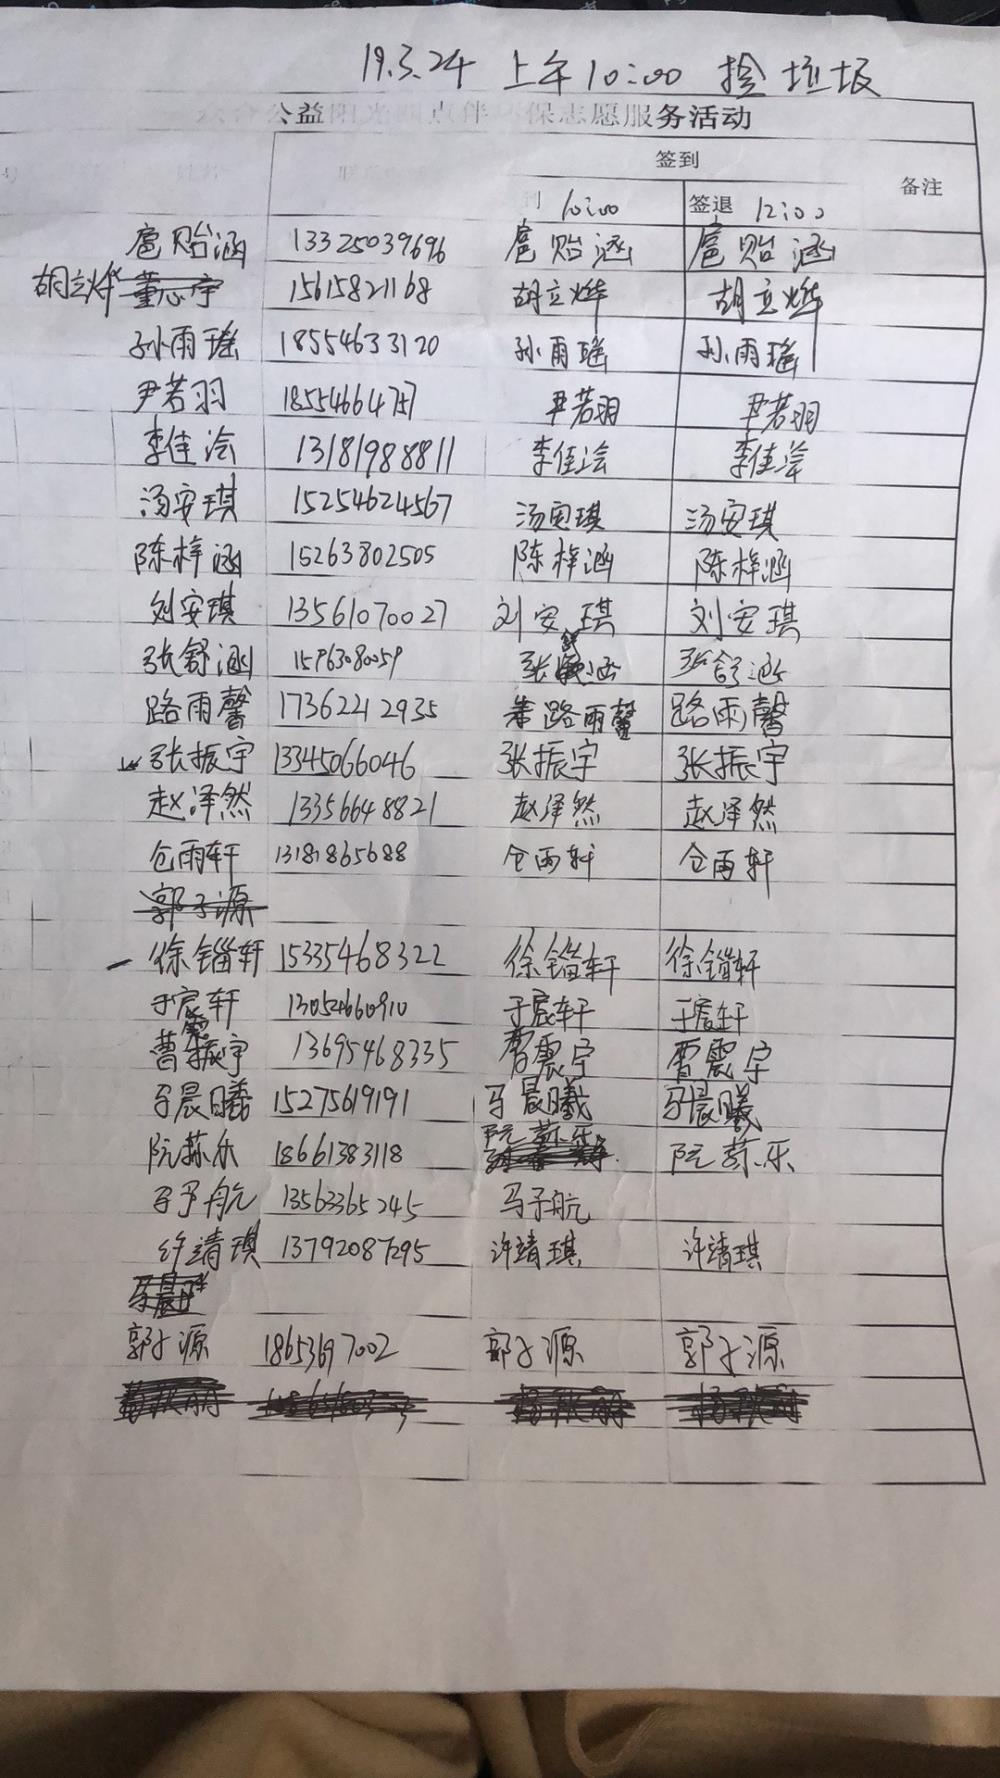 19.3.24 上午10:00 捡垃圾
公益阳光 点伴 保志愿服务活动
签到
备注
到 10:00 签退 12:00
扈贻涵 13325039696 扈贻涵 扈贻涵
胡立烨 董志宇 15615821168 胡立烨 胡立烨
孙雨瑶 18554633120 孙雨瑶 孙雨瑶
尹若羽 18554664757 尹若羽 尹若羽
李佳浍 13181988811 李佳浍 李佳浍
汤安琪 15254624567 汤安琪 汤安琪
陈梓涵 15263802505 陈梓涵 陈梓涵
刘安琪 13561070027 刘安琪 刘安琪
张舒涵 15963080059 张舒涵 张舒涵
路雨馨 17362212935 路雨馨 路雨馨
张振宇 13345066046 张振宇 张振宇
赵泽然 13356648821 赵泽然 赵泽然
仓雨轩 13181865688 仓雨轩 仓雨轩
郭子源
徐锱轩 15335468322 徐锱轩 徐锱轩
于宸轩 13054660910 于宸轩 于宸轩
曹震宇 13695468335 曹震宇 曹震宇
马晨曦 15275619191 马晨曦 马晨曦
阮荪乐 18661383118 阮荪乐 阮荪乐
马予航 13563365245 马予航
许靖琪 13792087295 许靖琪 许靖琪
郭子源 18653697002 郭子源 郭子源